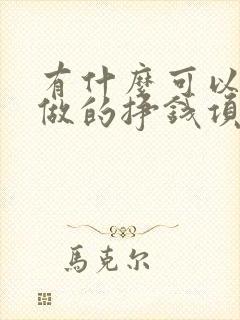 有什麼可以
做的掙錢項
馬克尔